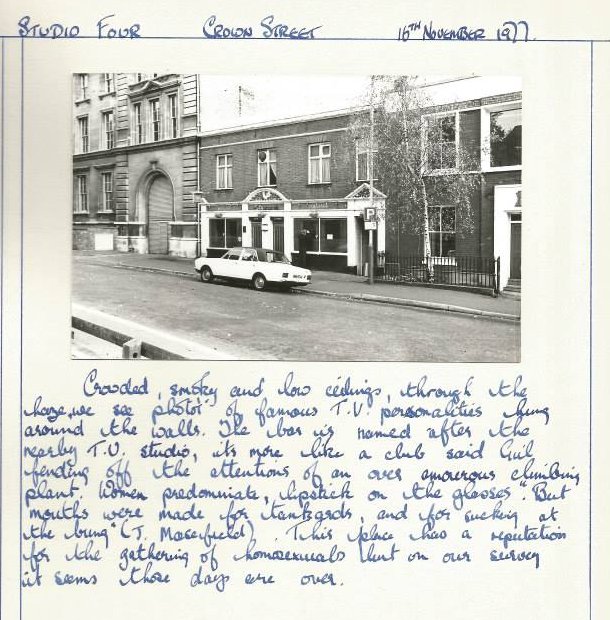 STUDIO FOUR CROWN STREET 16TH NOVEMBER 1977.
Crowded, smoky and low ceilings, through the
haze, we see photos of famous T.V. personalities hung
around the walls. The bar is named after the
nearby T.V. studio, its more like a club said Gil
fending off the attentions of an over amourous climbing
plant. Women predominate, lipstick on the glasses. "But
mouths were made for tankards, and for sucking at
the bung" (J. Masefield). This place has a reputation
for the gathering of homosexuals but on our survey
it seems those days are over.